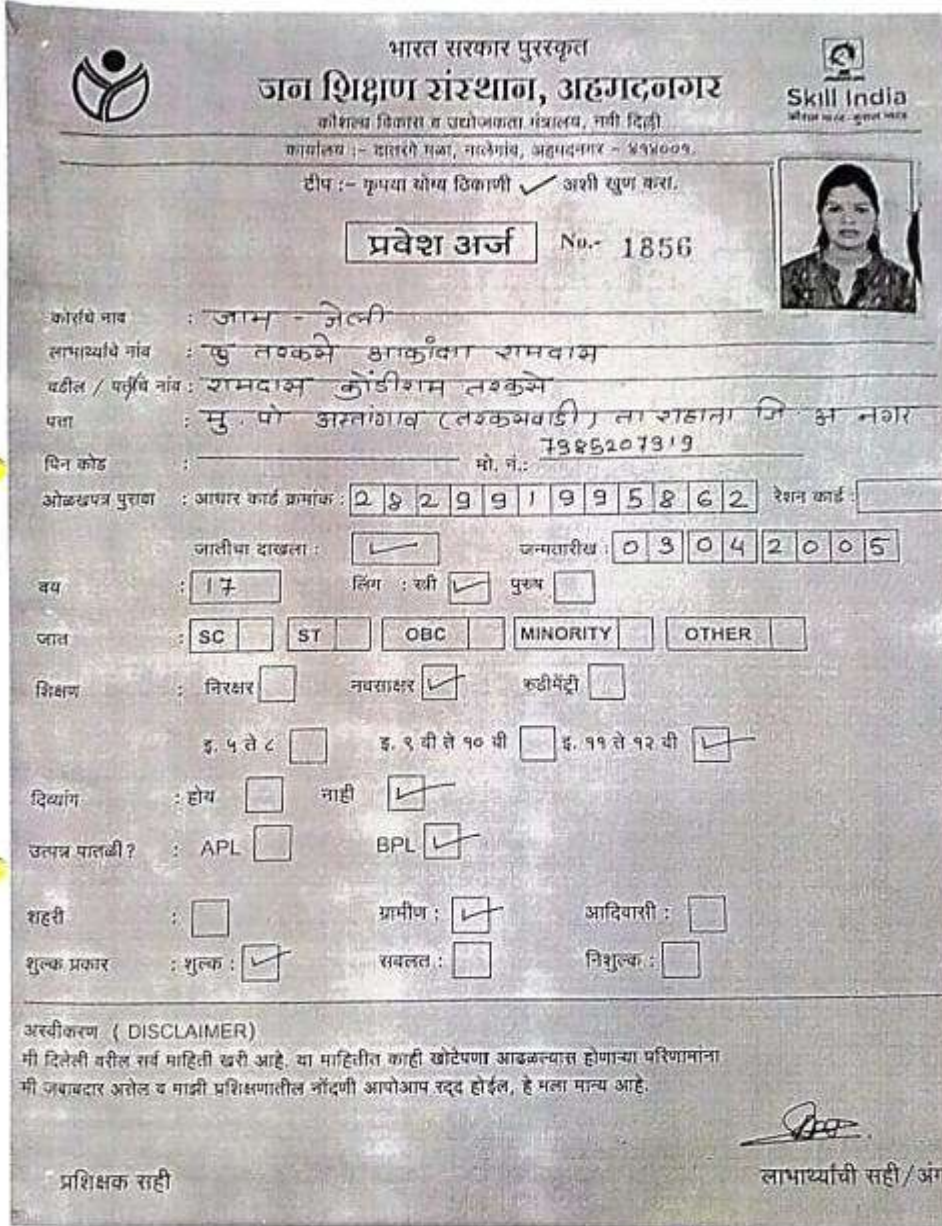 भारत सरकार पुरस्कृत
जन शिक्षण संस्थान, अहमदनगर
Skill India
कौशल भारत - कुशल भारत
कौशल्य विकास व उद्योजकता मंत्रालय, नवी दिल्ली
कार्यालय :- दातरंगे मळा, नालेगांव, अहमदनगर - ४१४००१.
टीप :- कृपया योग्य ठिकाणी ✓ अशी खुण करा.
प्रवेश अर्ज No.- 1856
कोर्सचे नाव : जाम - जेली
लाभार्थ्याचे नांव : कु तरकसे आकांक्षा रामदास
वडील / पतीचे नांव : रामदास कोंडीराम तरकसे
पत्ता : मु. पो अस्तगाव (तरकसवाडी) ता राहाता जि अ नगर
पिन कोड : मो. नं.: 7385207919
ओळखपत्र पुरावा : आधार कार्ड क्रमांक : 282991995862 रेशन कार्ड :
जातीचा दाखला : ✓ जन्मतारीख : 03042005
वय : 17 लिंग : स्त्री ✓ पुरुष
जात : SC ST OBC MINORITY OTHER
शिक्षण : निरक्षर नवसाक्षर ✓ रुडीमेंट्री
इ. ५ ते ८ इ. ९ वी ते १० वी इ. ११ ते १२ वी ✓
दिव्यांग : होय नाही ✓
उत्पन्न पातळी? : APL BPL ✓
शहरी : ग्रामीण : ✓ आदिवासी :
शुल्क प्रकार : शुल्क : ✓ सवलत : निशुल्क :
अस्वीकरण ( DISCLAIMER)
मी दिलेली वरील सर्व माहिती खरी आहे. या माहितीत काही खोटेपणा आढळल्यास होणाऱ्या परिणामांना
मी जबाबदार असेल व माझी प्रशिक्षणातील नोंदणी आपोआप रद्द होईल, हे मला मान्य आहे.
प्रशिक्षक सही लाभार्थ्याची सही/अंग